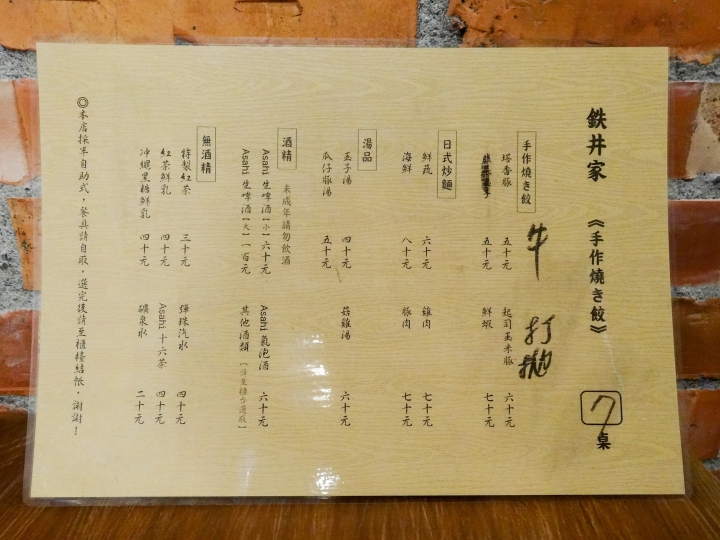 鉄井家 《手作燒き餃》 7桌
手作燒き餃 牛 打拋
塔香豚 五十元 起司玉米豚 六十元
五十元 鮮蝦 七十元
日式炒麵
鮮蔬 六十元 雞肉 七十元
海鮮 八十元 豚肉 七十元
湯品
玉子湯 四十元 菇雞湯 六十元
瓜仔豚湯 五十元
酒精 未成年請勿飲酒
Asahi 生啤酒【小】六十元 Asahi 氣泡酒 六十元
Asahi 生啤酒【大】一百元 其他酒類【請至櫃台選取】
無酒精
特製紅茶 三十元 彈珠汽水 四十元
紅茶鮮乳 四十元 Asahi 十六茶 四十元
沖繩黑糖鮮乳 四十元 礦泉水 二十元
◎本店採半自助式，餐具請自取，選完後請至櫃檯結帳，謝謝！